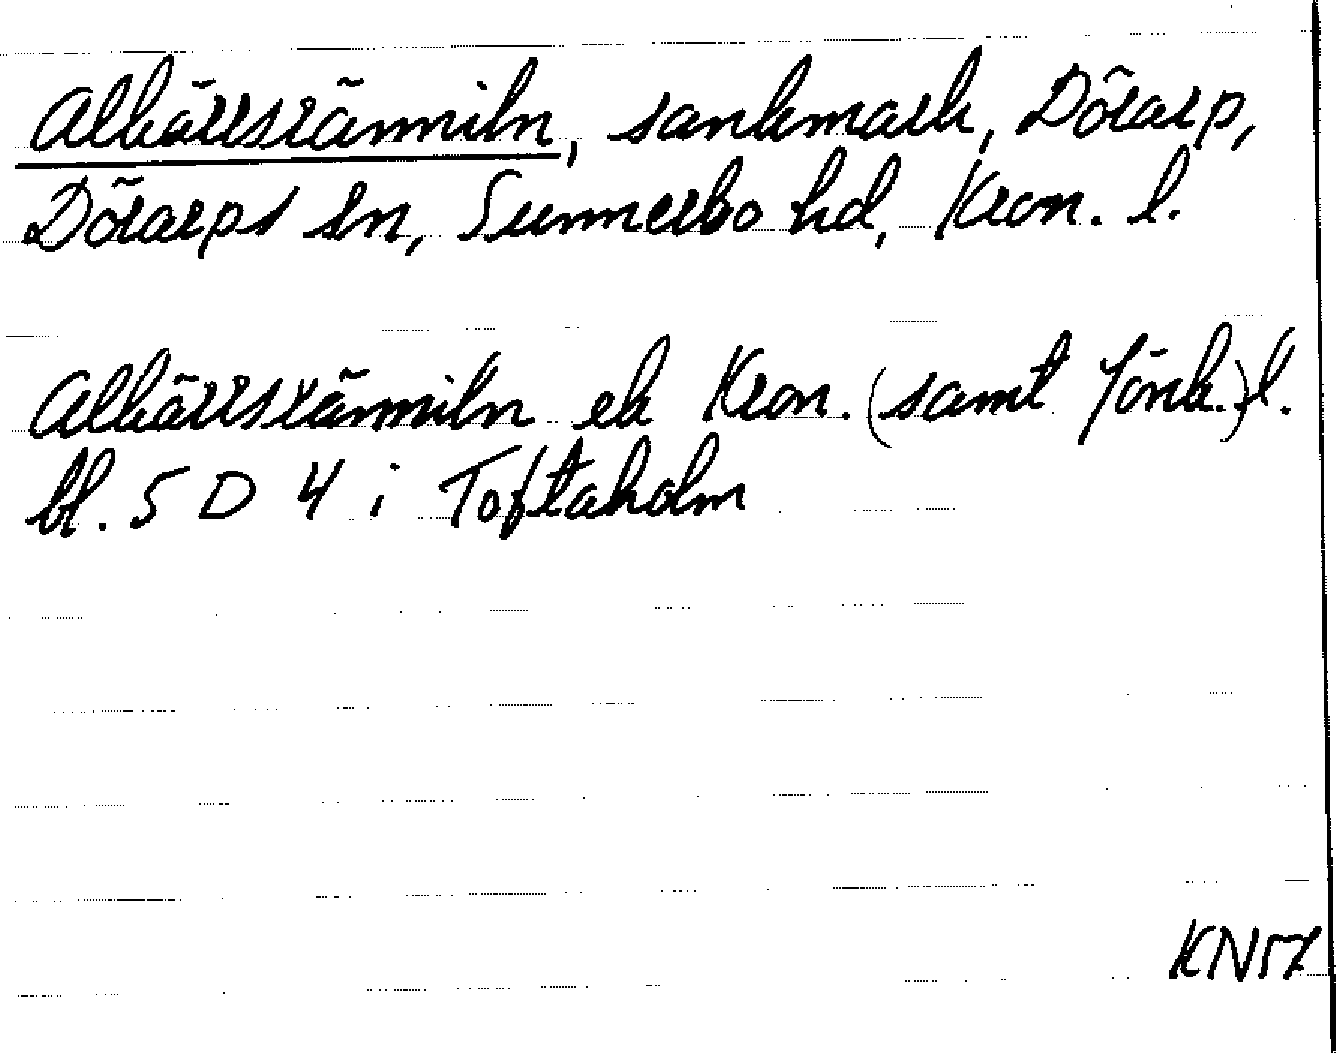 Alkärrsränniln, sankmark, Dörarp,
Dörarps sn, Sunnerbo hd, Kron. l.
Alkärrsränniln ek Kron. (samt Jönk.) l.
bl. 5 D 4 i Toftaholm
KN57